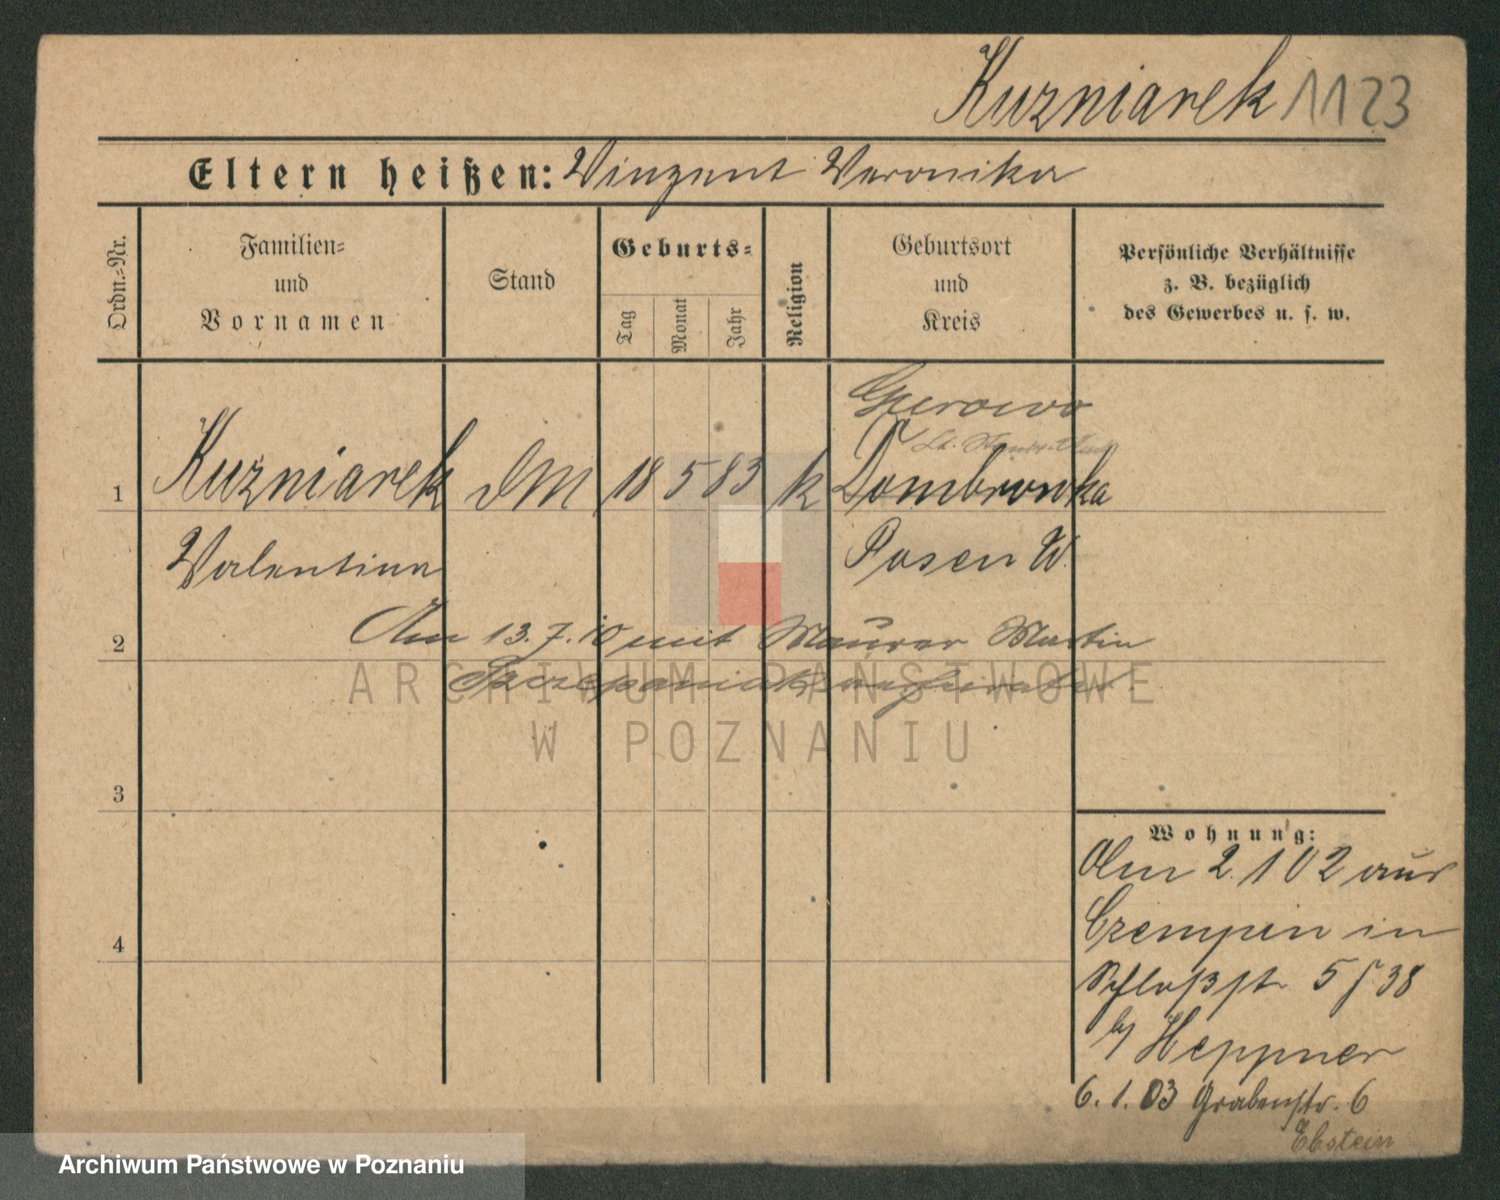 Kuzniarek 1123
Eltern heißen: Vinzent Veronika
Ordn.-Nr.
Familien-
und
Vornamen
Stand
Geburts-
Tag
Monat
Jahr
Religion
Geburtsort
und
Kreis
Persönliche Verhältnisse
z. B. bezüglich
des Gewerbes u. s. w.
Gurowo
1 Kuzniarek DM 18 5 83 k Dombrowka
Valentina Posen W.
Am 13.7.10 mit Maurer Martin
2
Szczepaniak verheiratet.
ARCHIWUM PAŃSTWOWE
W POZNANIU
3
Wohnung:
Am 2.1 02 aus
Czempin in
4
Schloßstr. 5 38
by Heppner
6.1.03 Grabenstr. 6
Ebstein
Archiwum Państwowe w Poznaniu